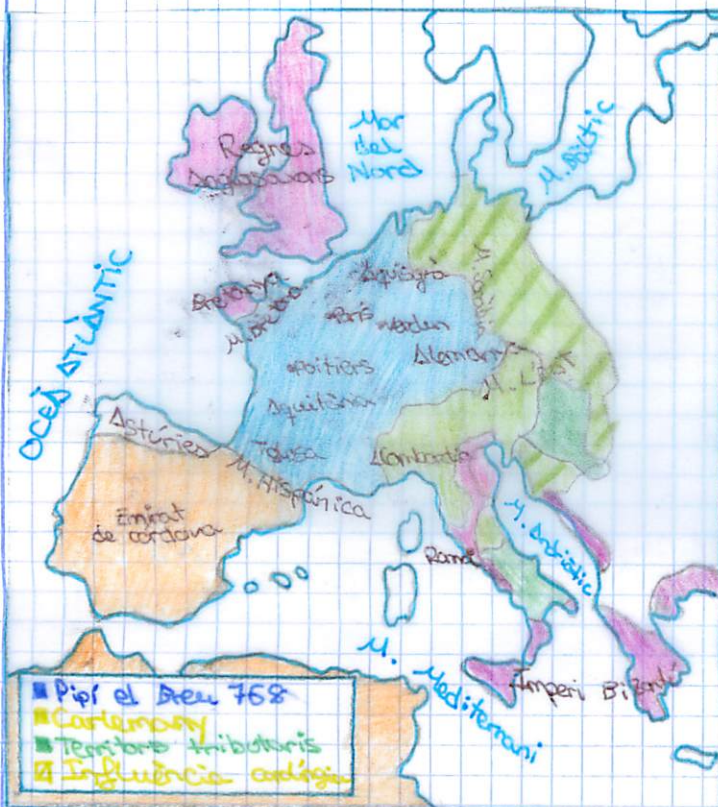 Mar
del
Nord
M. Bàltic
Regnes
Anglosaxons
OCEÀ ATLÀNTIC
Bretanya
M. Bretona
Aquisgrà
París
Verdun
Alemanya
M. L'est
Poitiers
Aquitània
Tolosa
Llombardia
Astúries
M. Hispánica
Emirat
de cordova
Roma
M. Adriàtic
M. Mediterrani
Imperi Bizantí
Pipí el Breu 768
Carlemany
Territoris tributaris
Influència carolíngia